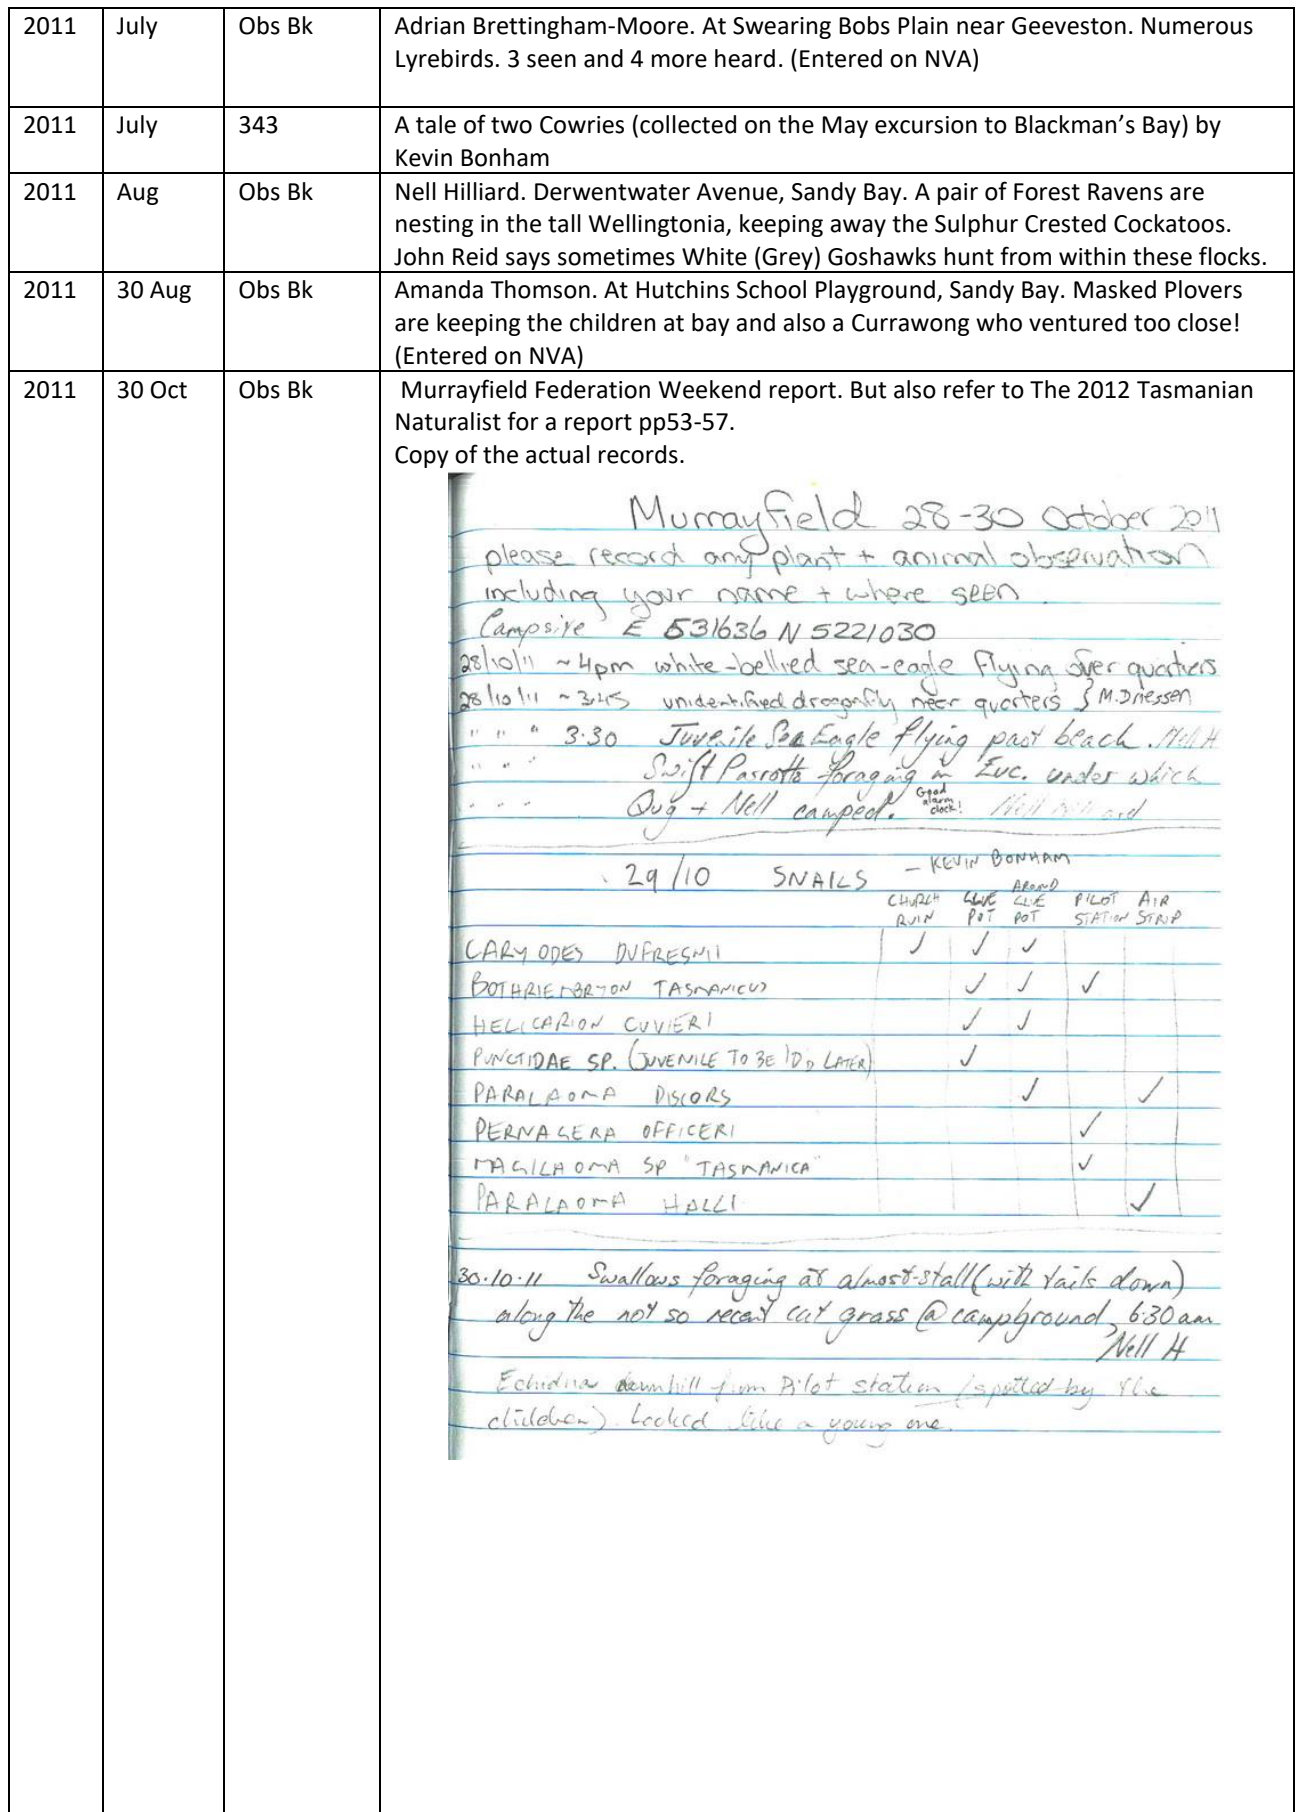 2011 July Obs Bk Adrian Brettingham-Moore. At Swearing Bobs Plain near Geeveston. Numerous
Lyrebirds. 3 seen and 4 more heard. (Entered on NVA)
2011 July 343 A tale of two Cowries (collected on the May excursion to Blackman’s Bay) by
Kevin Bonham
2011 Aug Obs Bk Nell Hilliard. Derwentwater Avenue, Sandy Bay. A pair of Forest Ravens are
nesting in the tall Wellingtonia, keeping away the Sulphur Crested Cockatoos.
John Reid says sometimes White (Grey) Goshawks hunt from within these flocks.
2011 30 Aug Obs Bk Amanda Thomson. At Hutchins School Playground, Sandy Bay. Masked Plovers
are keeping the children at bay and also a Currawong who ventured too close!
(Entered on NVA)
2011 30 Oct Obs Bk Murrayfield Federation Weekend report. But also refer to The 2012 Tasmanian
Naturalist for a report pp53-57.
Copy of the actual records.
Murrayfield 28-30 October 2011
please record any plant + animal observation
including your name + where seen.
Campsite E 531636 N 5221030
28/10/11 ~4pm white-bellied sea-eagle flying over quarters
28/10/11 ~3:45 unidentified dragonfly near quarters } M.Driessen
" " " 3.30 Juvenile Sea Eagle flying past beach. Nell H
" " " Swift Parrots foraging in Euc. under which
" " " Qug + Nell camped. Good alarm clock! Nell Hilliard
29/10 SNAILS – KEVIN BONHAM
CHURCH RUIN GLUE POT AROUND GLUE POT PILOT STATION AIR STRIP
CARYODES DUFRESNII ✓ ✓ ✓
BOTHRIEMBRYON TASMANICUS ✓ ✓ ✓
HELICARION CUVIERI ✓ ✓
PUNCTIDAE SP. (JUVENILE TO BE ID'D LATER) ✓
PARALAOMA DISCORS ✓ ✓
PERNAGERA OFFICERI ✓
MAGILAOMA SP "TASMANICA" ✓
PARALAOMA HALLI ✓
30.10.11 Swallows foraging at almost-stall (with tails down)
along the not so recent cut grass @ campground, 6.30am
Nell H
Echidna downhill from Pilot station (spotted by the
children). Looked like a young one.